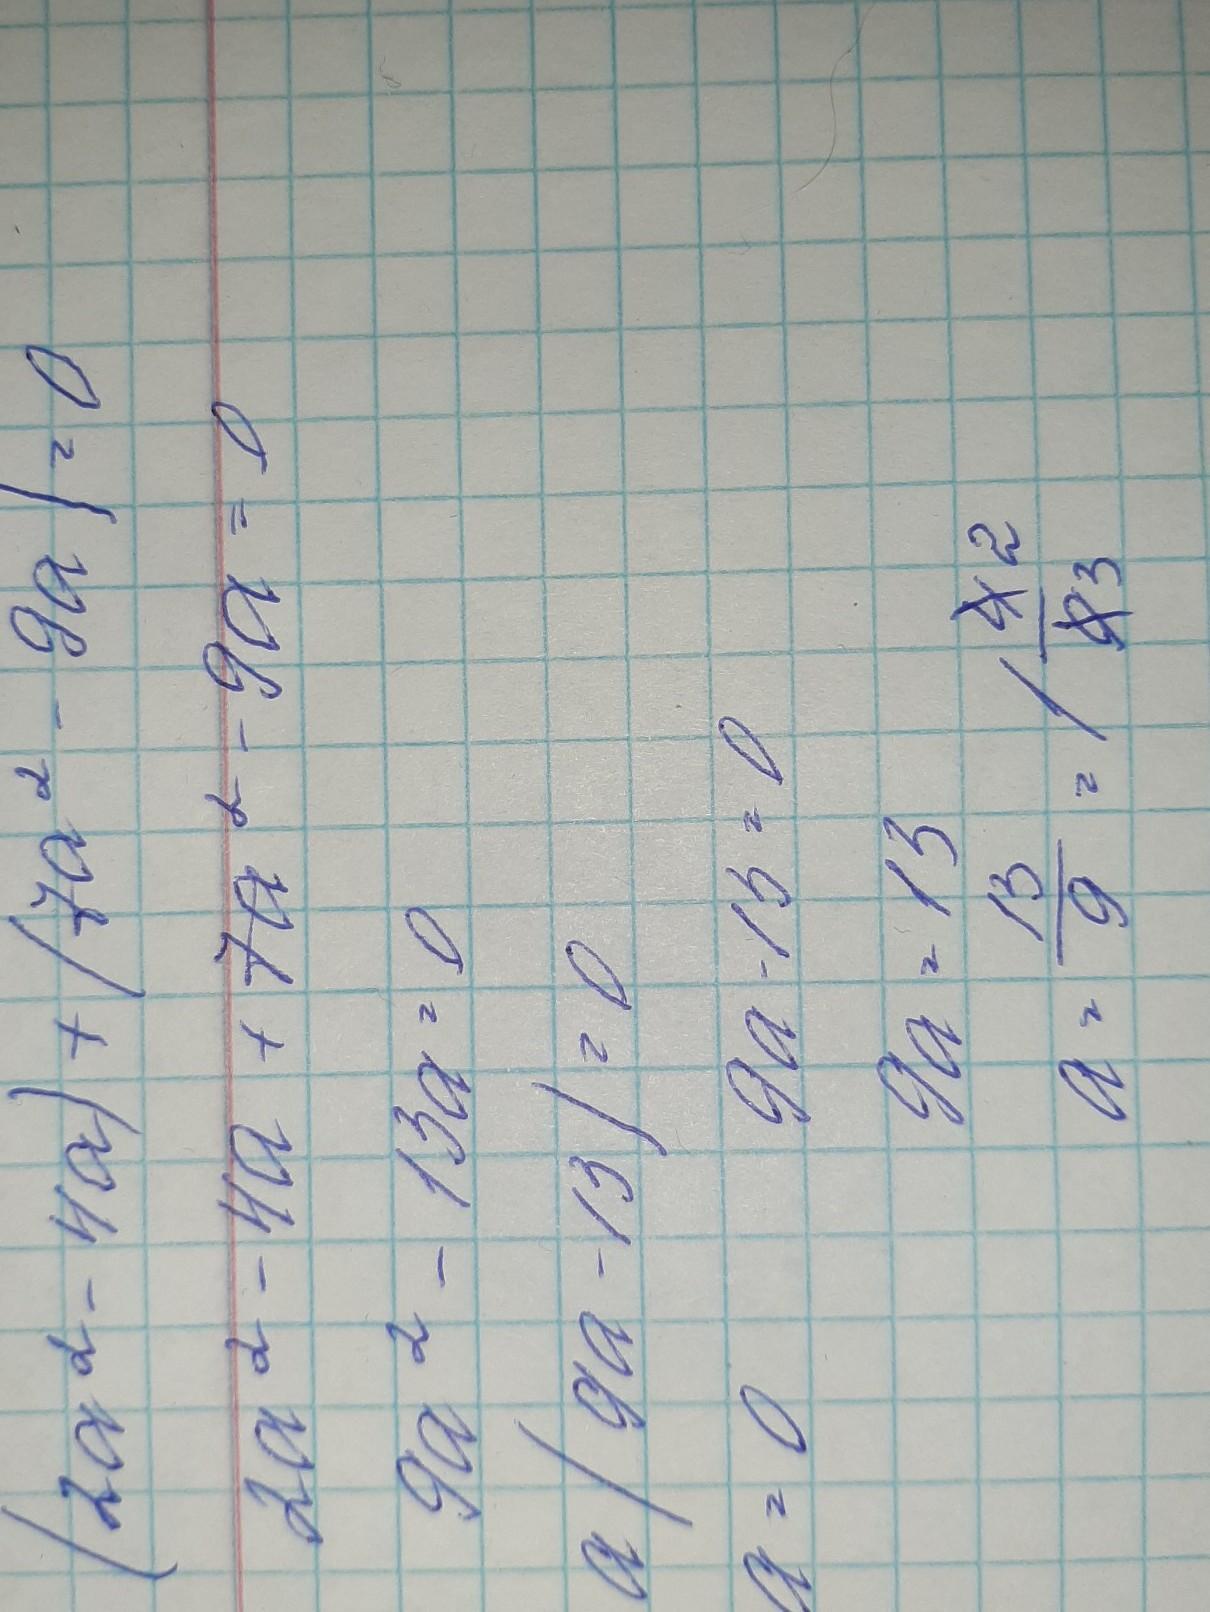 (2a² - 4a) + (7a² - 9a) = 0
2a² - 4a + 7a² - 9a = 0
9a² - 13a = 0
a(9a - 13) = 0
a = 0 9a - 13 = 0
9a = 13
a = 13/9 = 1 4̶2/9̶3